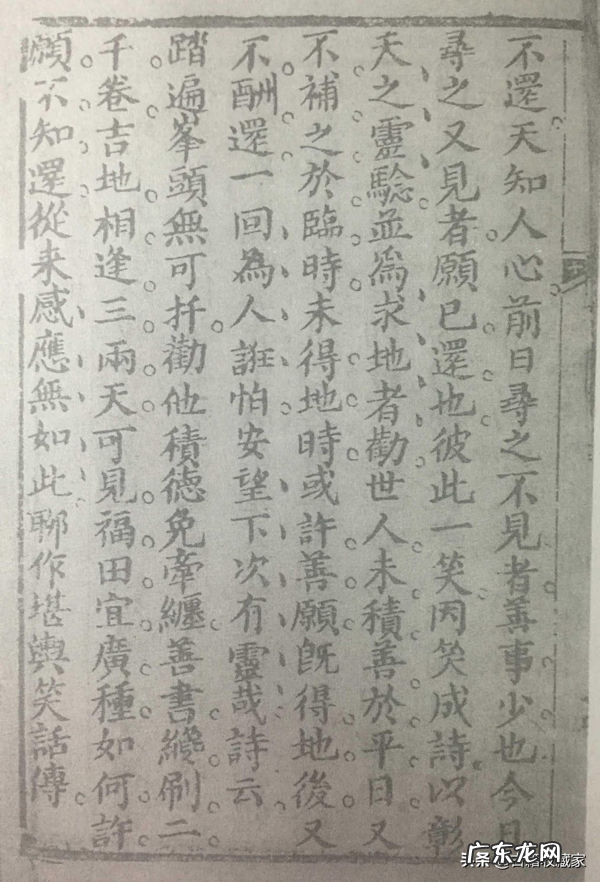 不還天知人心前日尋之不見者善事少也今日
尋之又見者願已還也彼此一笑因笑成詩以彰
天之靈驗並為求地者勸世人未積善於平日又
不補之於臨時未得地時或許善願既得地後又
不酬還一回為人誑怕安望下次有靈哉詩云
踏遍峯頭無可扦勸他積德免牽纏善書纔刷二
千卷吉地相逢三兩天可見福田宜廣種如何許
願不知還從来感應無如此聊作堪輿笑話傳
广东龙网
头条@古籍收藏家